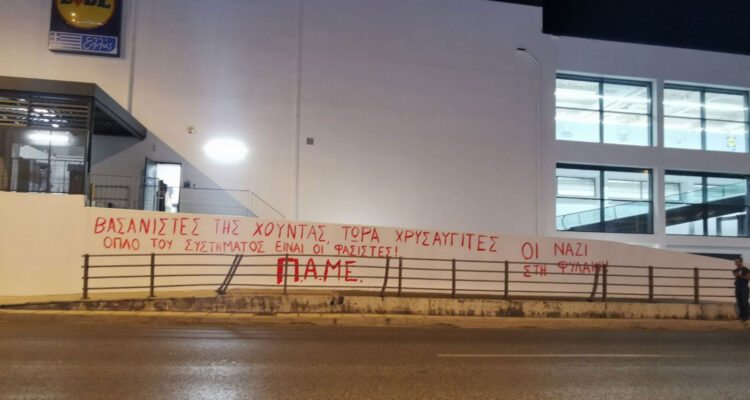 LIDL
Ελλάς
ΒΑΣΑΝΙΣΤΕΣ ΤΗΣ ΧΟΥΝΤΑΣ, ΤΩΡΑ ΧΡΥΣΑΥΓΙΤΕΣ
ΟΠΛΟ ΤΟΥ ΣΥΣΤΗΜΑΤΟΣ ΕΙΝΑΙ ΟΙ ΦΑΣΙΣΤΕΣ!
Π.Α.ΜΕ.
ΟΙ ΝΑΖΙ
ΣΤΗ ΦΥΛΑΚΗ